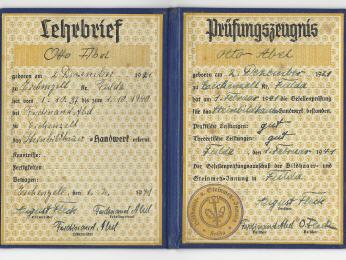 Lehrbrief
Otto Abel
geboren am 2. Dezember 1921
zu Eichenzell Kr. Fulda
hat vom 1.10.37 bis zum 1.10.1940
bei Ferdinand Abel
zu Eichenzell
das Steinbildhauer-Handwerk erlernt.
Kenntnisse:
Fertigkeiten:
Betragen:
Eichenzell, den 1.2.1941
August Fleck Ferdinand Abel
Ferdinand Abel
Prüfungszeugnis
Otto Abel
geboren am 2. Dezember 1921
zu Eichenzell Kr. Fulda
hat am 1. Februar 1941 die Gesellenprüfung
für das Steinbildhauerhandwerk bestanden.
Praktische Leistungen: gut
Theoretische Leistungen: gut
Fulda, den 1. Februar 1941
Der Gesellenprüfungsausschuß der Bildhauer- und
Steinmetz-Innung in Fulda
August Fleck
Ferdinand Abel